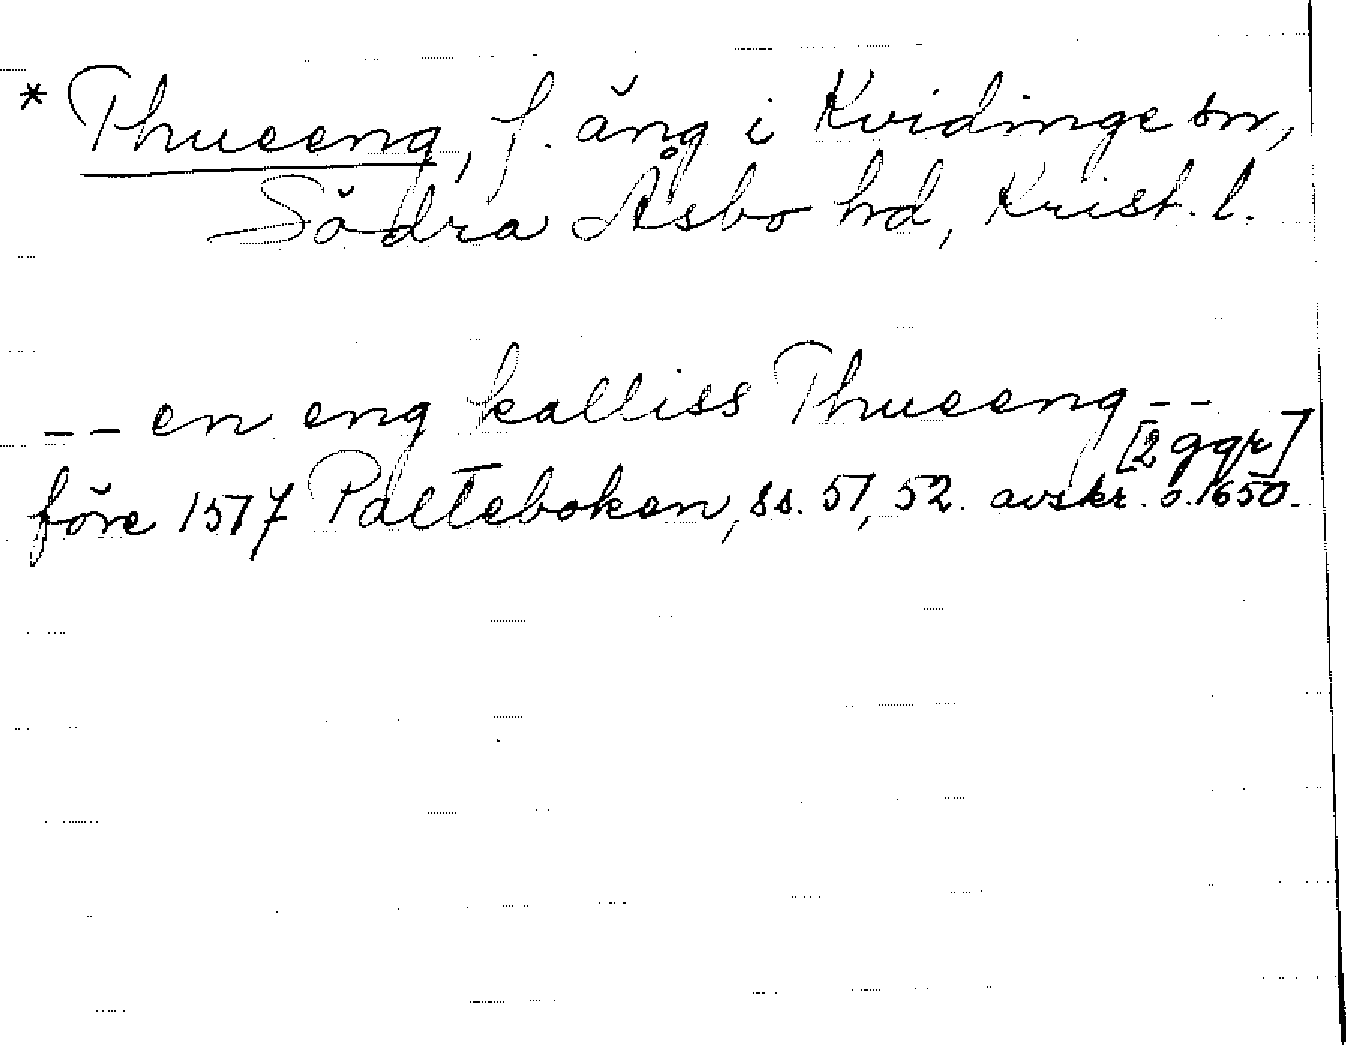 * Thueeng, f. äng i Kvidinge sn,
Södra Åsbo hd, Krist. l.
-- en eng kalliss Thueeng --
[2 ggr]
före 1517 Palteboken, ss. 51, 52. avskr. o. 1650.